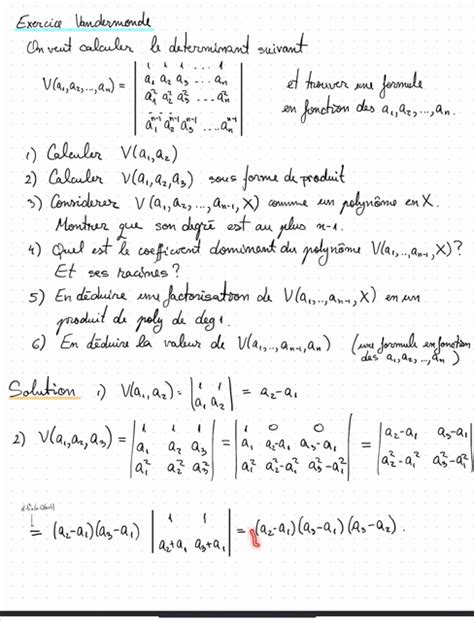 Exercice Vandermonde
On veut calculer le determinant suivant
V(a₁,a₂,...,aₙ) = | 1 1 1 ... 1 | et trouver une formule
| a₁ a₂ a₃ ... aₙ | en fonction des a₁,a₂,...,aₙ.
| a₁² a₂² a₃² ... aₙ² |
| a₁ⁿ⁻¹ a₂ⁿ⁻¹ a₃ⁿ⁻¹ ... aₙⁿ⁻¹ |
1) Calculer V(a₁,a₂)
2) Calculer V(a₁,a₂,a₃) sous forme de produit
3) Considerer V(a₁,a₂,...,aₙ₋₁,X) comme un polynôme en X.
Montrer que son degré est au plus n-1.
4) Quel est le coefficient dominant du polynôme V(a₁,..,aₙ₋₁,X)?
Et ses racines?
5) En déduire une factorisation de V(a₁,..,aₙ₋₁,X) en un
produit de poly de deg 1.
6) En déduire la valeur de V(a₁,..,aₙ₋₁,aₙ) (une formule en fonction
des a₁,a₂,..,aₙ)
Solution 1) V(a₁,a₂) = | 1 1 | = a₂-a₁
| a₁ a₂ |
2) V(a₁,a₂,a₃) = | 1 1 1 | = | 1 0 0 | = | a₂-a₁ a₃-a₁ |
| a₁ a₂ a₃ | | a₁ a₂-a₁ a₃-a₁ | | a₂²-a₁² a₃²-a₁² |
| a₁² a₂² a₃² | | a₁² a₂²-a₁² a₃²-a₁² |
= (a₂-a₁)(a₃-a₁) | 1 1 | = (a₂-a₁)(a₃-a₁)(a₃-a₂).
| a₂+a₁ a₃+a₁ |